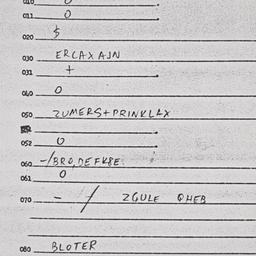 010 0
011 0
020 $
030 ERCAXAJN
031 +
040 0
050 ZUMERS+PRINKLAX
052 0
060 -/BRO,DEFK8E
061 0
070 - / ZGULE QHEB
080 BLOTER